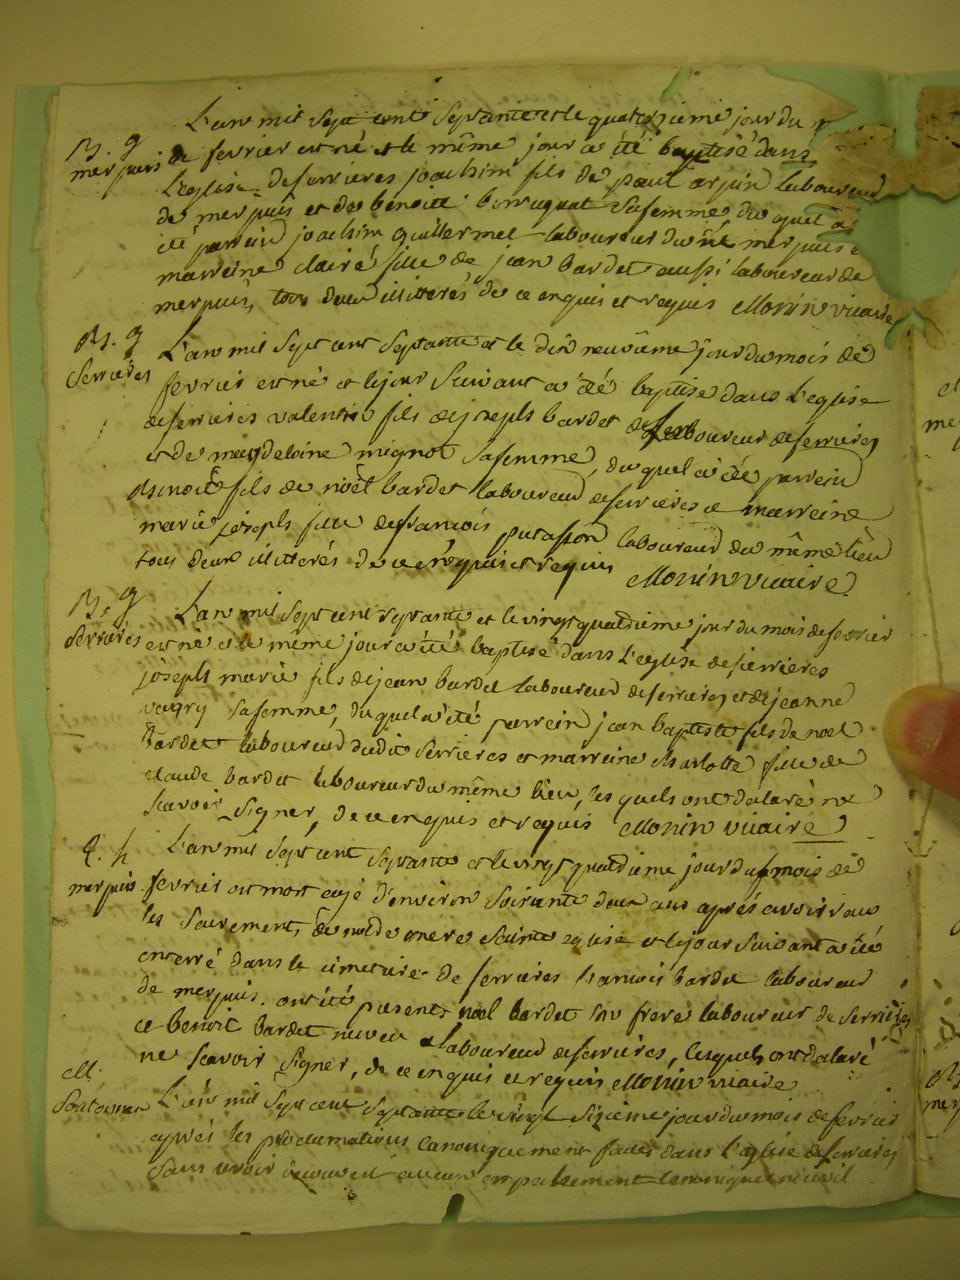 L'an mil sept cent septante et le quatorzieme jour du
B. g
merpuis de fevrier est né et le même jour a été baptisé dans
L'eglise de serrieres joachim fils de paul arpin laboureur
de merpuis et de benoite sa femme duquel a
été parrein joachim guillermet laboureur du dit merpuis et
marreine claire fille de jean bardet aussi laboureur de
merpuis, tous deux illitterés de ce enquis et requis Monin vicaire
B. g
serrieres
L'an mil sept cent septante et le dix neuvième jour du mois de
fevrier est né et le jour suivant a été baptisé dans L'eglise
de serrieres valentin fils de joseph bardet laboureur de serrieres
et de magdeloine mignot sa femme, duquel a été parrein
Benoit fils de noël bardet laboureur de serrieres et marreine
marie joseph fille de francois laboureur du même lieu
tous deux illitterés de ce enquis et requis Monin vicaire
B. g
serrieres
L'an mil sept cent septante et le vingt quatrieme jour du mois de fevrier
est né et le même jour a été baptisé dans L'eglise de serrieres
joseph marie fils de jean bardet laboureur de serrieres et de jeanne
sa femme, duquel a été parrein jean baptiste fils de noel
bardet laboureur dudit serrieres et marreine charlotte fille de
claude bardet laboureur du même lieu, lesquels ont declaré ne
scavoir signer, de ce enquis et requis Monin vicaire
E. h
merpuis
L'an mil sept cent septante et le vingt quatrieme jour du mois de
fevrier est mort agé d'environ soixante deux ans après avoir recu
les sacrements de notre mere sainte eglise et le jour suivant a été
enterré dans le cimetiere de serrieres francois bardet laboureur
de merpuis. ont été presents noel bardet son frere laboureur de serrieres
et benoit bardet neveu laboureur de serrieres, lesquels ont declaré
ne scavoir signer, de ce enquis et requis Monin vicaire
M.
L'an mil sept cent septante le vingt sixieme jour du mois de fevrier
après les proclamations canoniquement faites dans l'eglise de serrieres
sans avoir decouvert aucun empechement canonique ni civil